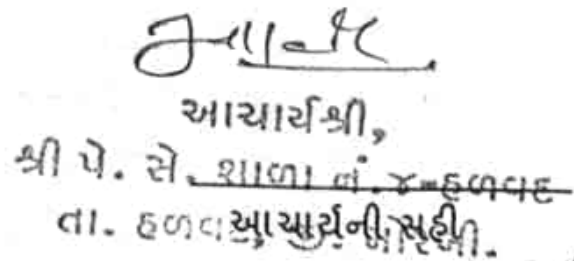 આચાર્યશ્રી,
શ્રી પે. સે. શાળા નં. ૪-હળવદ
તા. હળવ આચાર્યની સહી